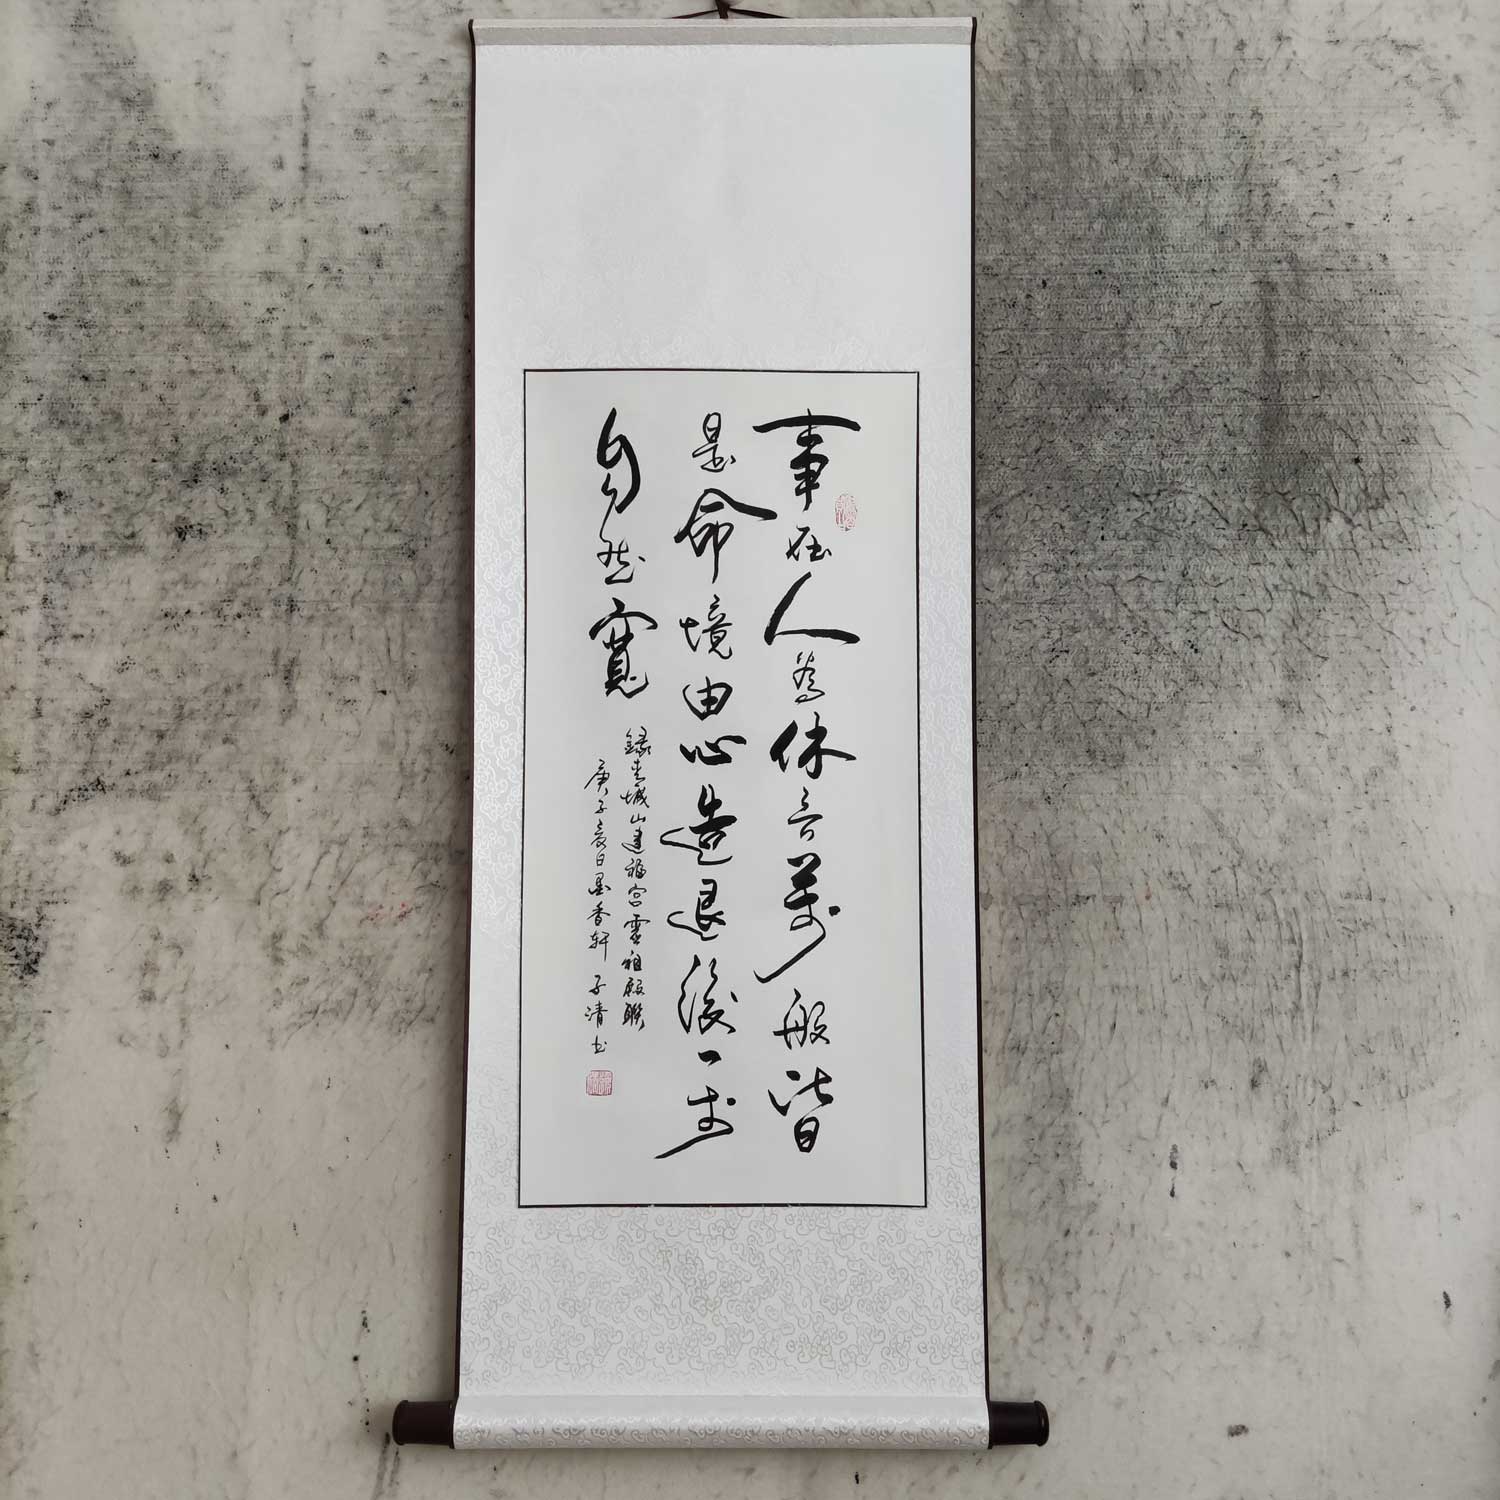 事在人為休言萬般皆
是命境由心造退後一步
自然寬
録青城山建福宮靈祖殿聯
庚子夏日墨香軒子清书